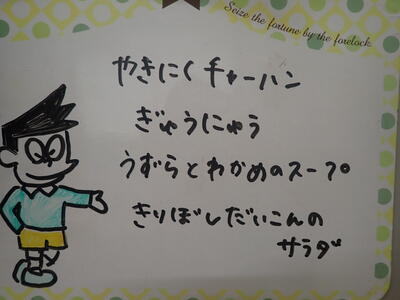 Seize the fortune by the forelock.
やきにくチャーハン
ぎゅうにゅう
うずらとわかめのスープ
きりぼしだいこんの
サラダ